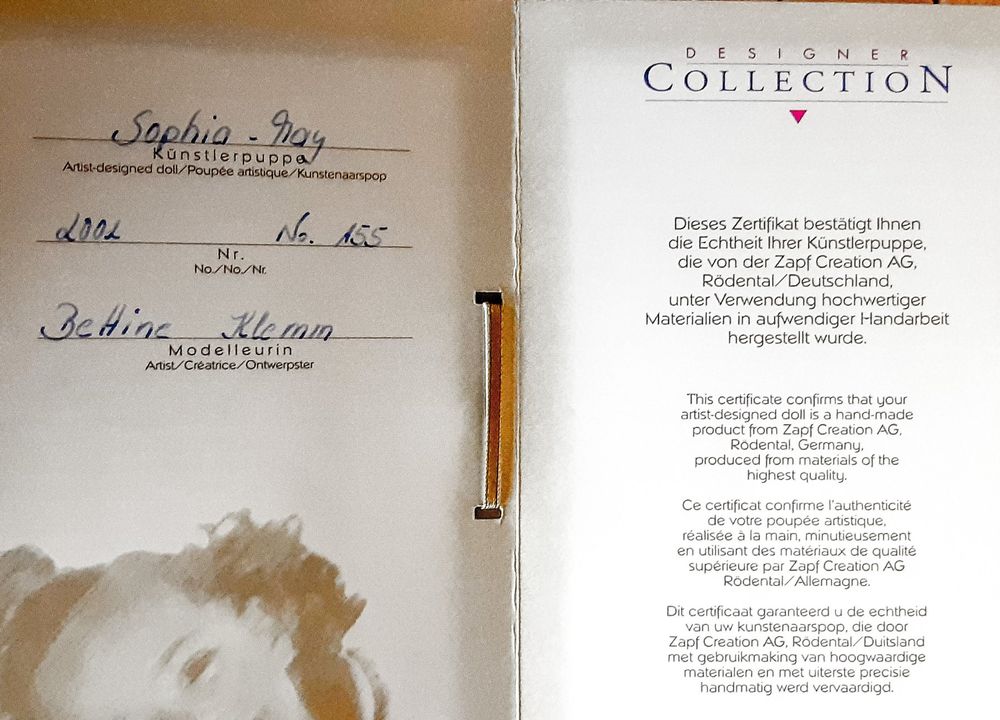 Sophia - May
Künstlerpuppe
Artist-designed doll/Poupée artistique/Kunstenaarspop
2002 No. 155
Nr.
No./No./Nr.
Bettine Klemm
Modelleurin
Artist/Créatrice/Ontwerpster
DESIGNER
COLLECTION
Dieses Zertifikat bestätigt Ihnen
die Echtheit Ihrer Künstlerpuppe,
die von der Zapf Creation AG,
Rödental/Deutschland,
unter Verwendung hochwertiger
Materialien in aufwendiger Handarbeit
hergestellt wurde.
This certificate confirms that your
artist-designed doll is a hand-made
product from Zapf Creation AG,
Rödental, Germany,
produced from materials of the
highest quality.
Ce certificat confirme l'authenticité
de votre poupée artistique,
réalisée à la main, minutieusement
en utilisant des matériaux de qualité
supérieure par Zapf Creation AG
Rödental/Allemagne.
Dit certificaat garanteerd u de echtheid
van uw kunstenaarspop, die door
Zapf Creation AG, Rödental/Duitsland
met gebruikmaking van hoogwaardige
materialen en met uiterste precisie
handmatig werd vervaardigd.